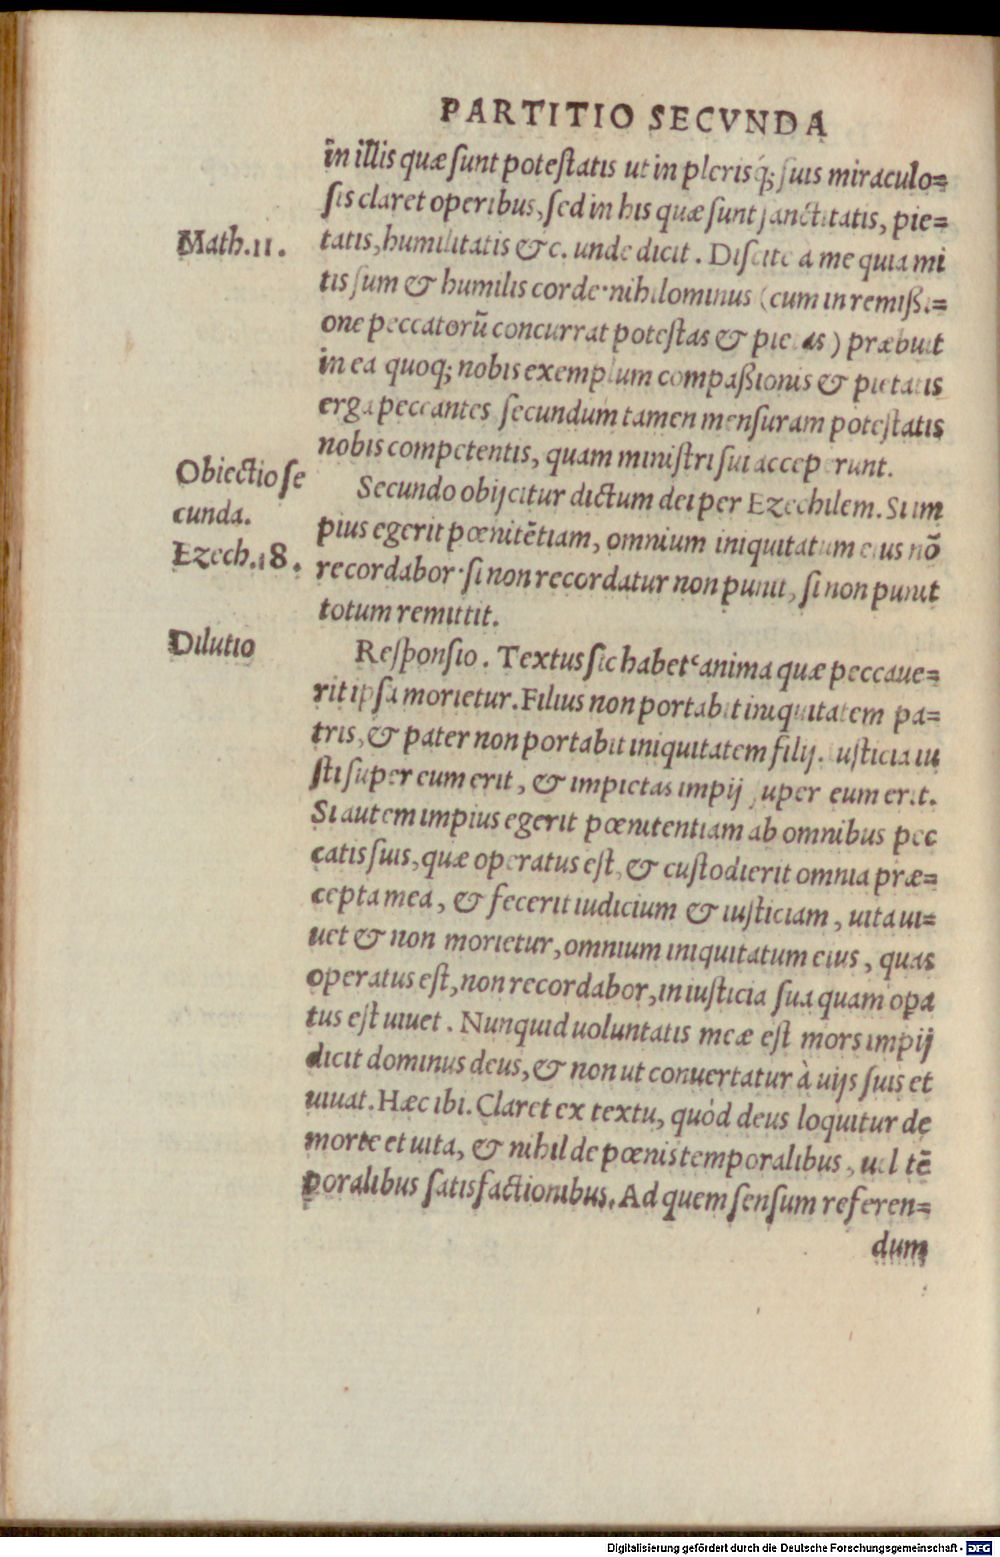 PARTITIO SECVNDA
in illis quæ ſunt poteſtatis ut in pleriſq́; ſuis miraculo=
ſis claret operibus, ſed in his quæ ſunt ſanctitatis, pie=
Math.11.
tatis, humilitatis &c. unde dicit. Diſcite à me quia mi
tis ſum & humilis corde· nihilominus (cum in remißi=
one peccatorũ concurrat poteſtas & pietas) præbuit
in ea quoq; nobis exemplum compaßionis & pietatis
erga peccantes ſecundum tamen menſuram poteſtatis
nobis competentis, quam miniſtri ſui acceperunt.
Obiectio ſe
cunda.
Ezech.18.
Secundo obijcitur dictum dei per Ezechilem. Si im
pius egerit pœnitẽtiam, omnium iniquitatum eius nõ
recordabor· ſi non recordatur non punit, ſi non punit
totum remittit.
Dilutio
Reſponſio. Textus ſic habet· anima quæ peccaue=
rit ipſa morietur. Filius non portabit iniquitatem pa=
tris, & pater non portabit iniquitatem filij. iuſticia iu
ſti ſuper eum erit, & impietas impij ſuper eum erit.
Si autem impius egerit pœnitentiam ab omnibus pec
catis ſuis, quæ operatus eſt, & cuſtodierit omnia præ=
cepta mea, & fecerit iudicium & iuſticiam, uita ui=
uet & non morietur, omnium iniquitatum eius, quas
operatus eſt, non recordabor, in iuſticia ſua quam opa
tus eſt uiuet. Nunquid uoluntatis meæ eſt mors impij
dicit dominus deus, & non ut conuertatur à uijs ſuis et
uiuat. Hæc ibi. Claret ex textu, quòd deus loquitur de
morte et uita, & nihil de pœnis temporalibus, uel tẽ
poralibus ſatisfactionibus. Ad quem ſenſum referen=
dum
Digitalisierung gefördert durch die Deutsche Forschungsgemeinschaft - DFG